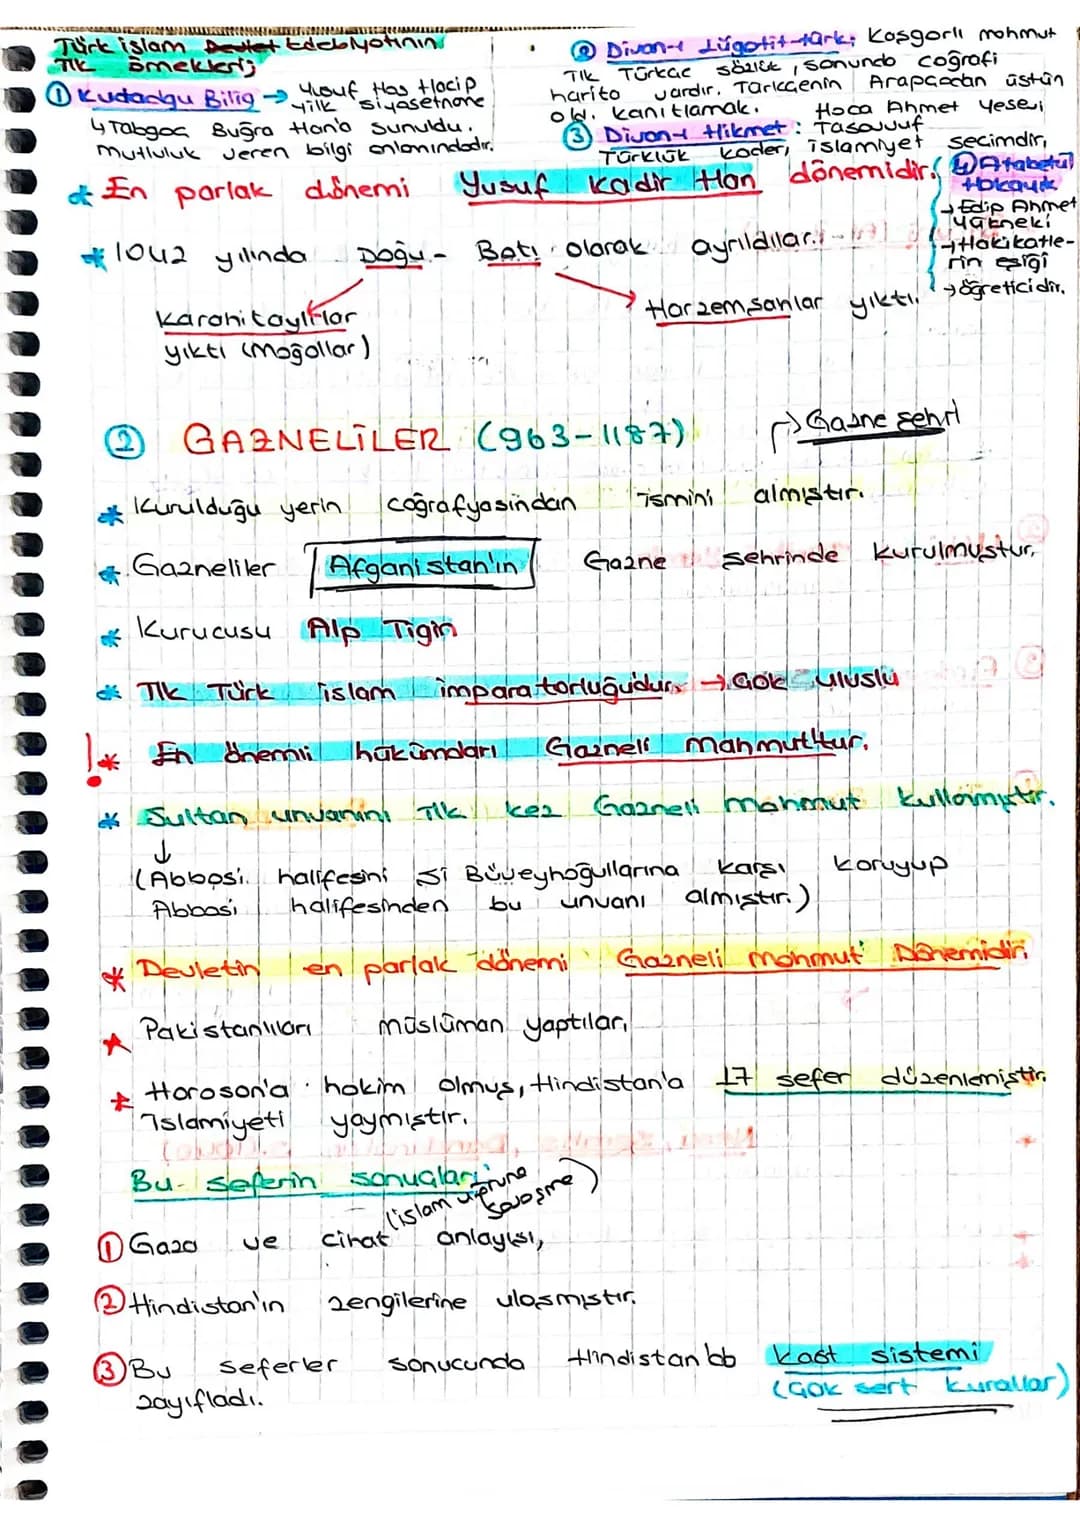 Türk islam Devlet Edebiyatının
İlk örnekleri;
① Kudadgu Bilig → Yusuf Has Hacip
ilk siyasetname
↳ Tabgaç Buğra Han'a sunuldu.
mutluluk veren bilgi anlamındadır.
② Divan-ı Lügatit-türk; Kaşgarlı mahmut
İlk Türkçe sözlük, sonunda coğrafi
harita vardır. Türkçenin Arapçadan üstün
old. kanıtlamak.
Hoca Ahmet Yesevi
③ Divan-ı Hikmet : Tasavvuf
Türklük kader, islamiyet seçimdir,
④ Atabetül
Hakayık
→ Edip Ahmet
Yükneki
→ Hakikatle-
rin eşiği
→ öğreticidir.
* En parlak dönemi Yusuf Kadir Han dönemidir.
* 1042 yılında Doğu - Batı olarak ayrıldılar.
Karahitaylılar
yıktı (Moğollar)
Harzemşahlar yıktı.
② GAZNELİLER (963-1187) → Gazne şehri
* Kurulduğu yerin coğrafyasından ismini almıştır.
* Gazneliler Afganistan'ın Gazne şehrinde kurulmuştur.
* Kurucusu Alp Tigin
* İlk Türk islam imparatorluğudur. → Çok uluslu
! * En önemli hükümdarı Gazneli mahmut'tur.
* Sultan unvanını ilk kez Gazneli mahmut kullanmıştır.
↓
(Abbasi halifesini şi Büveyhoğullarına karşı koruyup
Abbasi halifesinden bu unvanı almıştır.)
* Devletin en parlak dönemi Gazneli mahmut Dönemidir
* Pakistanlıları müslüman yaptılar.
* Horosan'a hakim olmuş, Hindistan'a 17 sefer düzenlemiştir.
İslamiyeti yaymıştır.
Bu seferin sonuçları;
(islam uğruna
savaşma)
① Gaza ve cihat anlayışı,
② Hindistan'ın zengilerine ulaşmıştır.
③ Bu seferler sonucunda Hindistan'da kast sistemi
(çok sert kurallar)
zayıfladı.